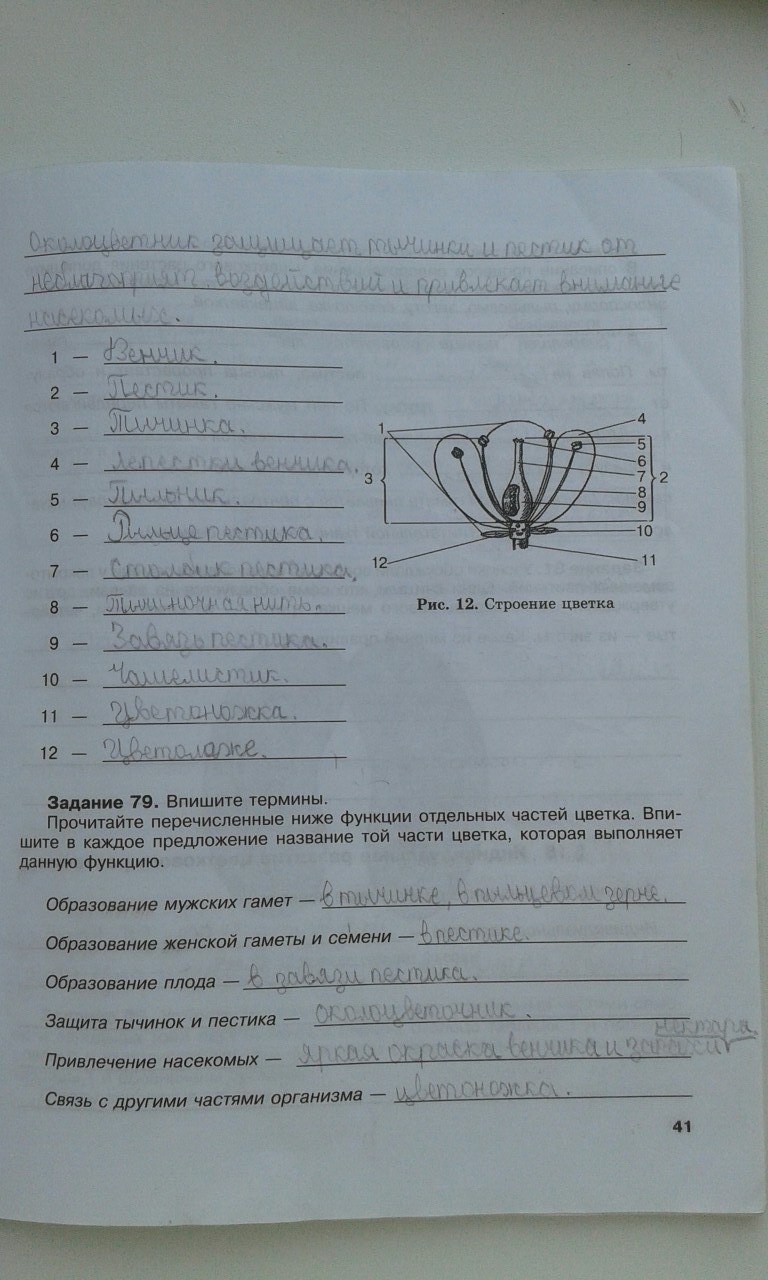 Околоцветник защищает тычинки и пестик от
неблагоприят. воздействий и привлекает внимание
насекомых.
1 — Венчик.
2 — Пестик.
3 — Тичинка.
4 — Лепестки венчика.
5 — Пыльник.
6 — Рыльце пестика.
7 — Столбик пестика,
8 — Тычиночная нить.
9 — Завязь пестика.
10 — Чашелистик.
11 — Цветоножка.
12 — Цветоложе.
1
4
5
6
3
7
2
8
9
10
12
11
Рис. 12. Строение цветка
Задание 79. Впишите термины.
Прочитайте перечисленные ниже функции отдельных частей цветка. Впи-
шите в каждое предложение название той части цветка, которая выполняет
данную функцию.
Образование мужских гамет — в тычинке, в пыльцевом зерне.
Образование женской гаметы и семени — в пестике.
Образование плода — в завязи пестика.
Защита тычинок и пестика — околоцветочник.
нектара.
Привлечение насекомых — яркая окраска венчика и
Связь с другими частями организма — цветоножка.
41